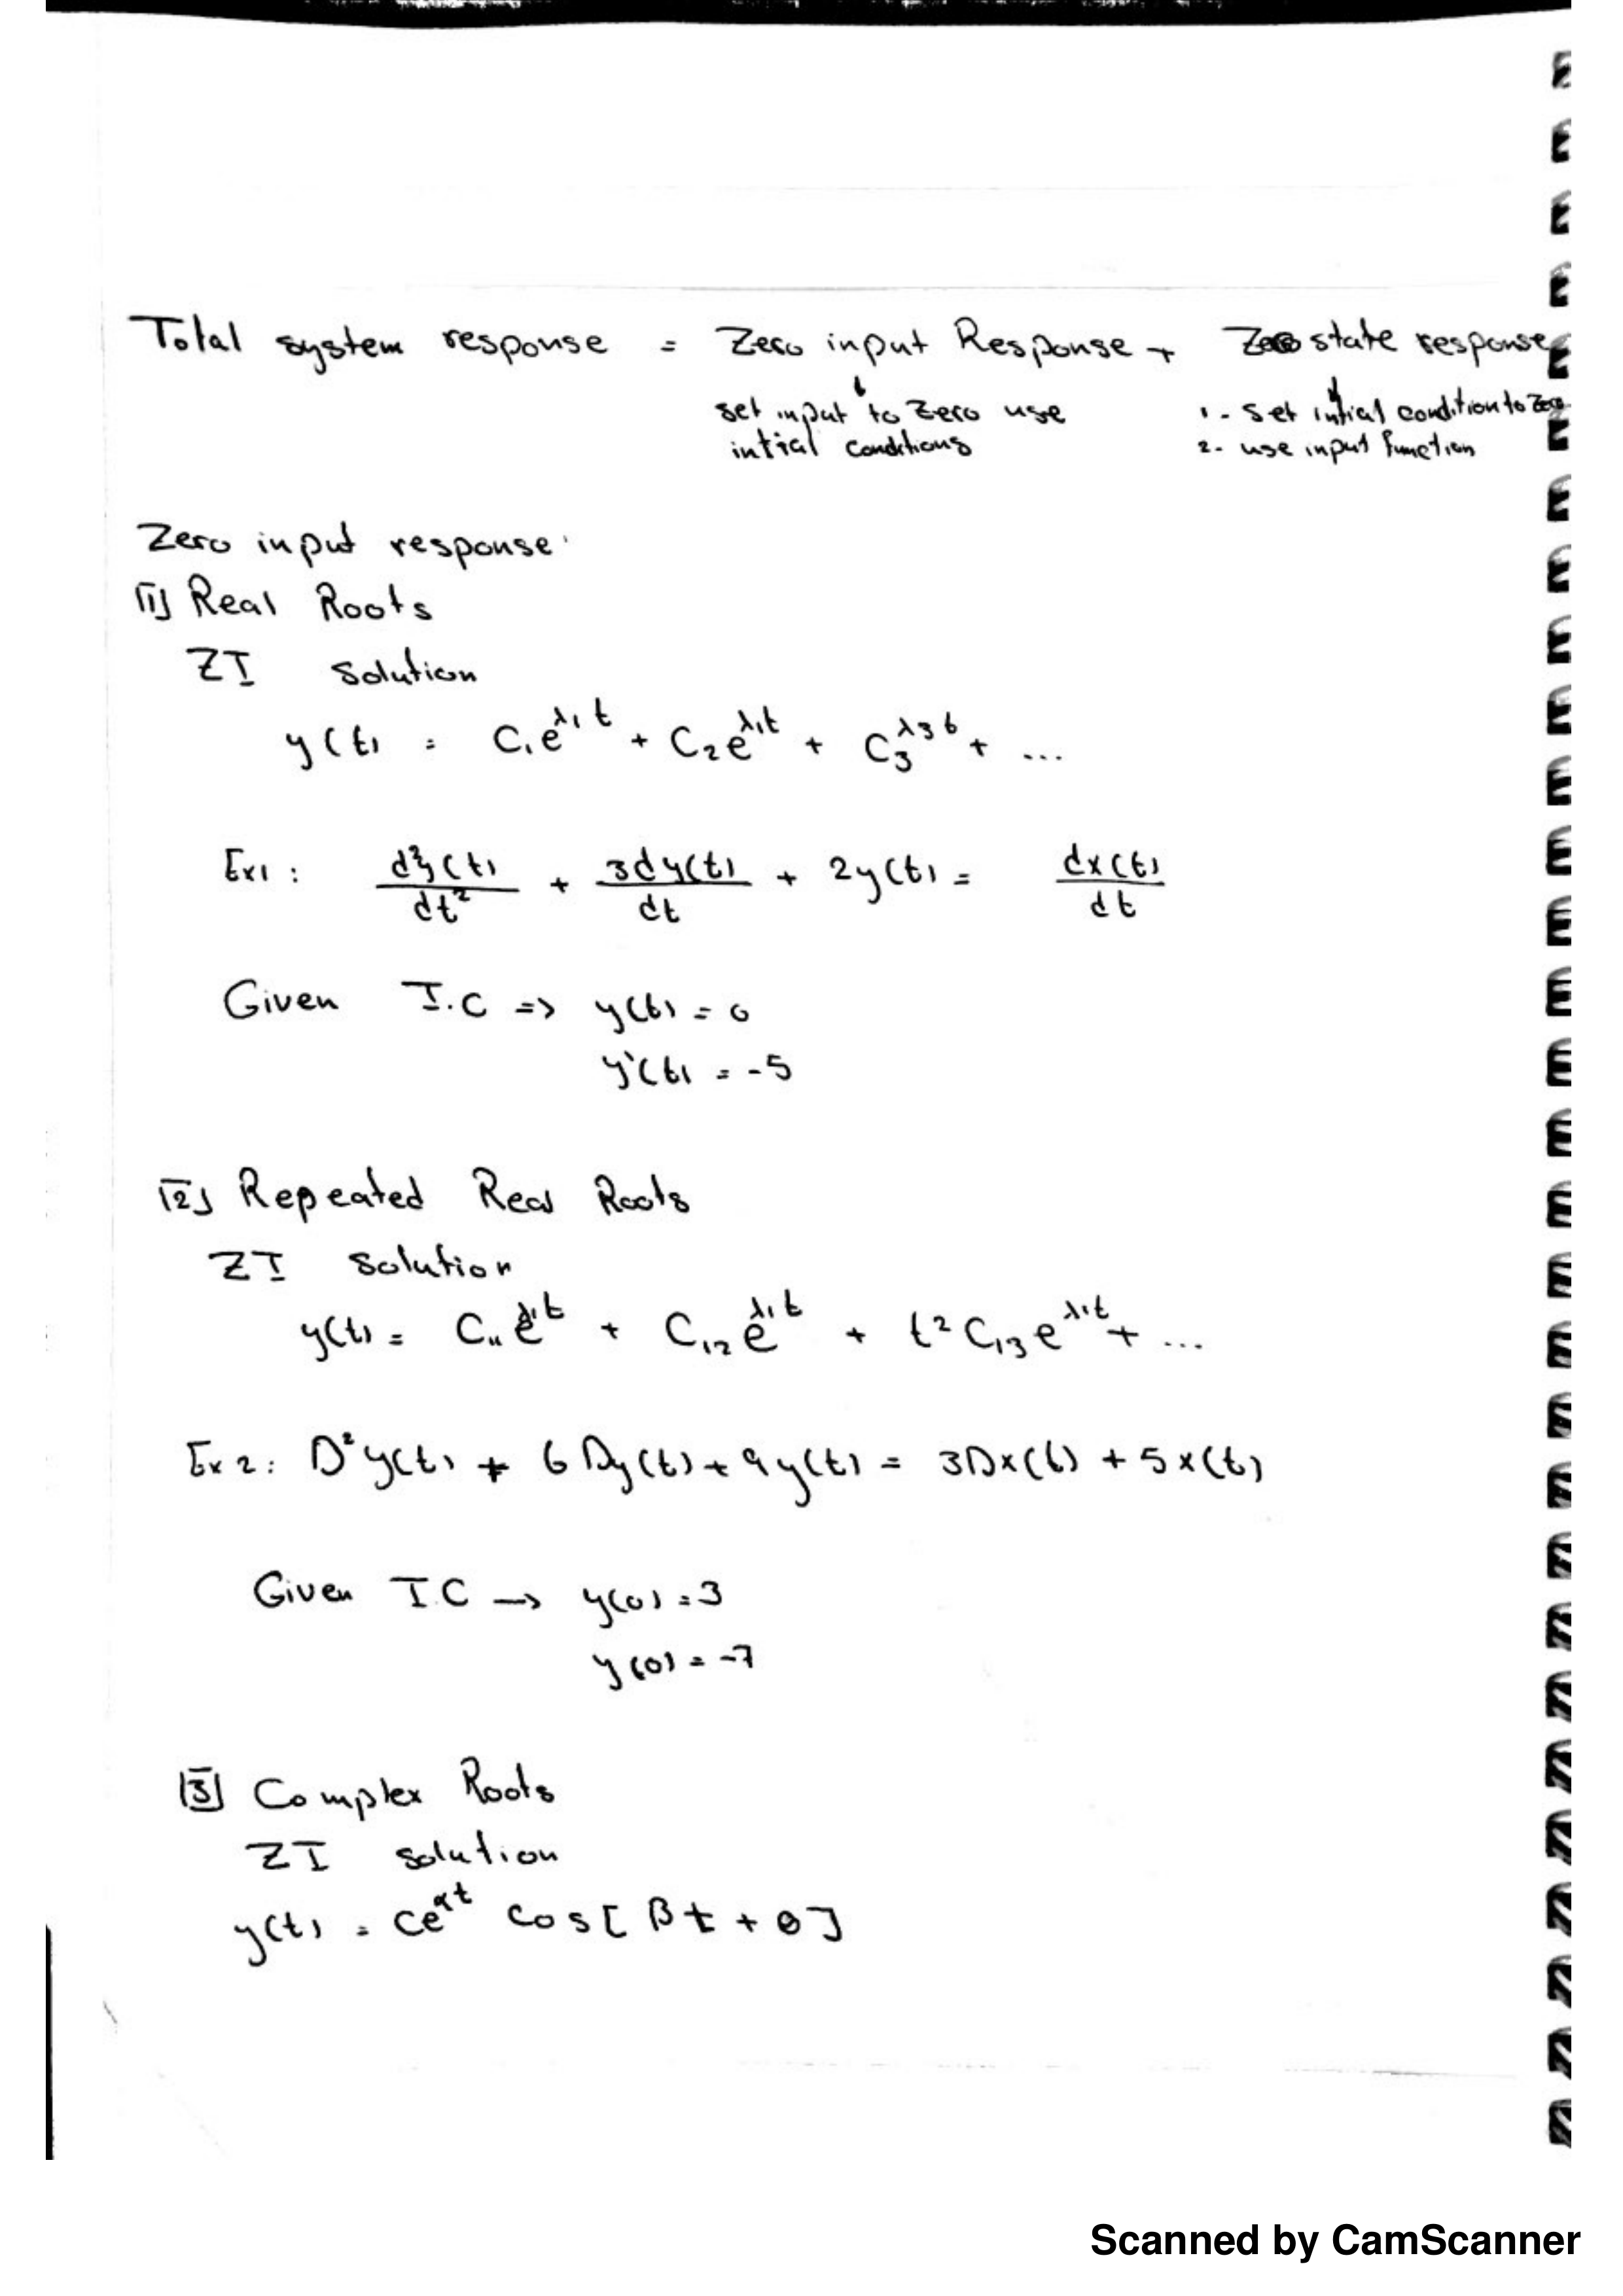 Total system response = Zero input Response + Zero state response
set input to Zero use 1- Set intial condition to Zero
intial conditions 2- use input function
Zero input response:
[1] Real Roots
ZI solution
y(t) = C₁e^λ₁t + C₂e^λ₁t + C₃^λ₃t + ...
Ex1: d²y(t)/dt² + 3dy(t)/dt + 2y(t) = dx(t)/dt
Given I.C => y(t) = 0
y'(t) = -5
[2] Repeated Real Roots
ZI solution
y(t) = C₁₁e^λ₁t + C₁₂e^λ₁t + t²C₁₃e^λ₁t + ...
Ex2: D²y(t) + 6Dy(t) + 9y(t) = 3Dx(t) + 5x(t)
Given I.C → y(0) = 3
y(0) = -7
[3] Complex Roots
ZI solution
y(t) = Ce^αt cos[βt + θ]
Scanned by CamScanner